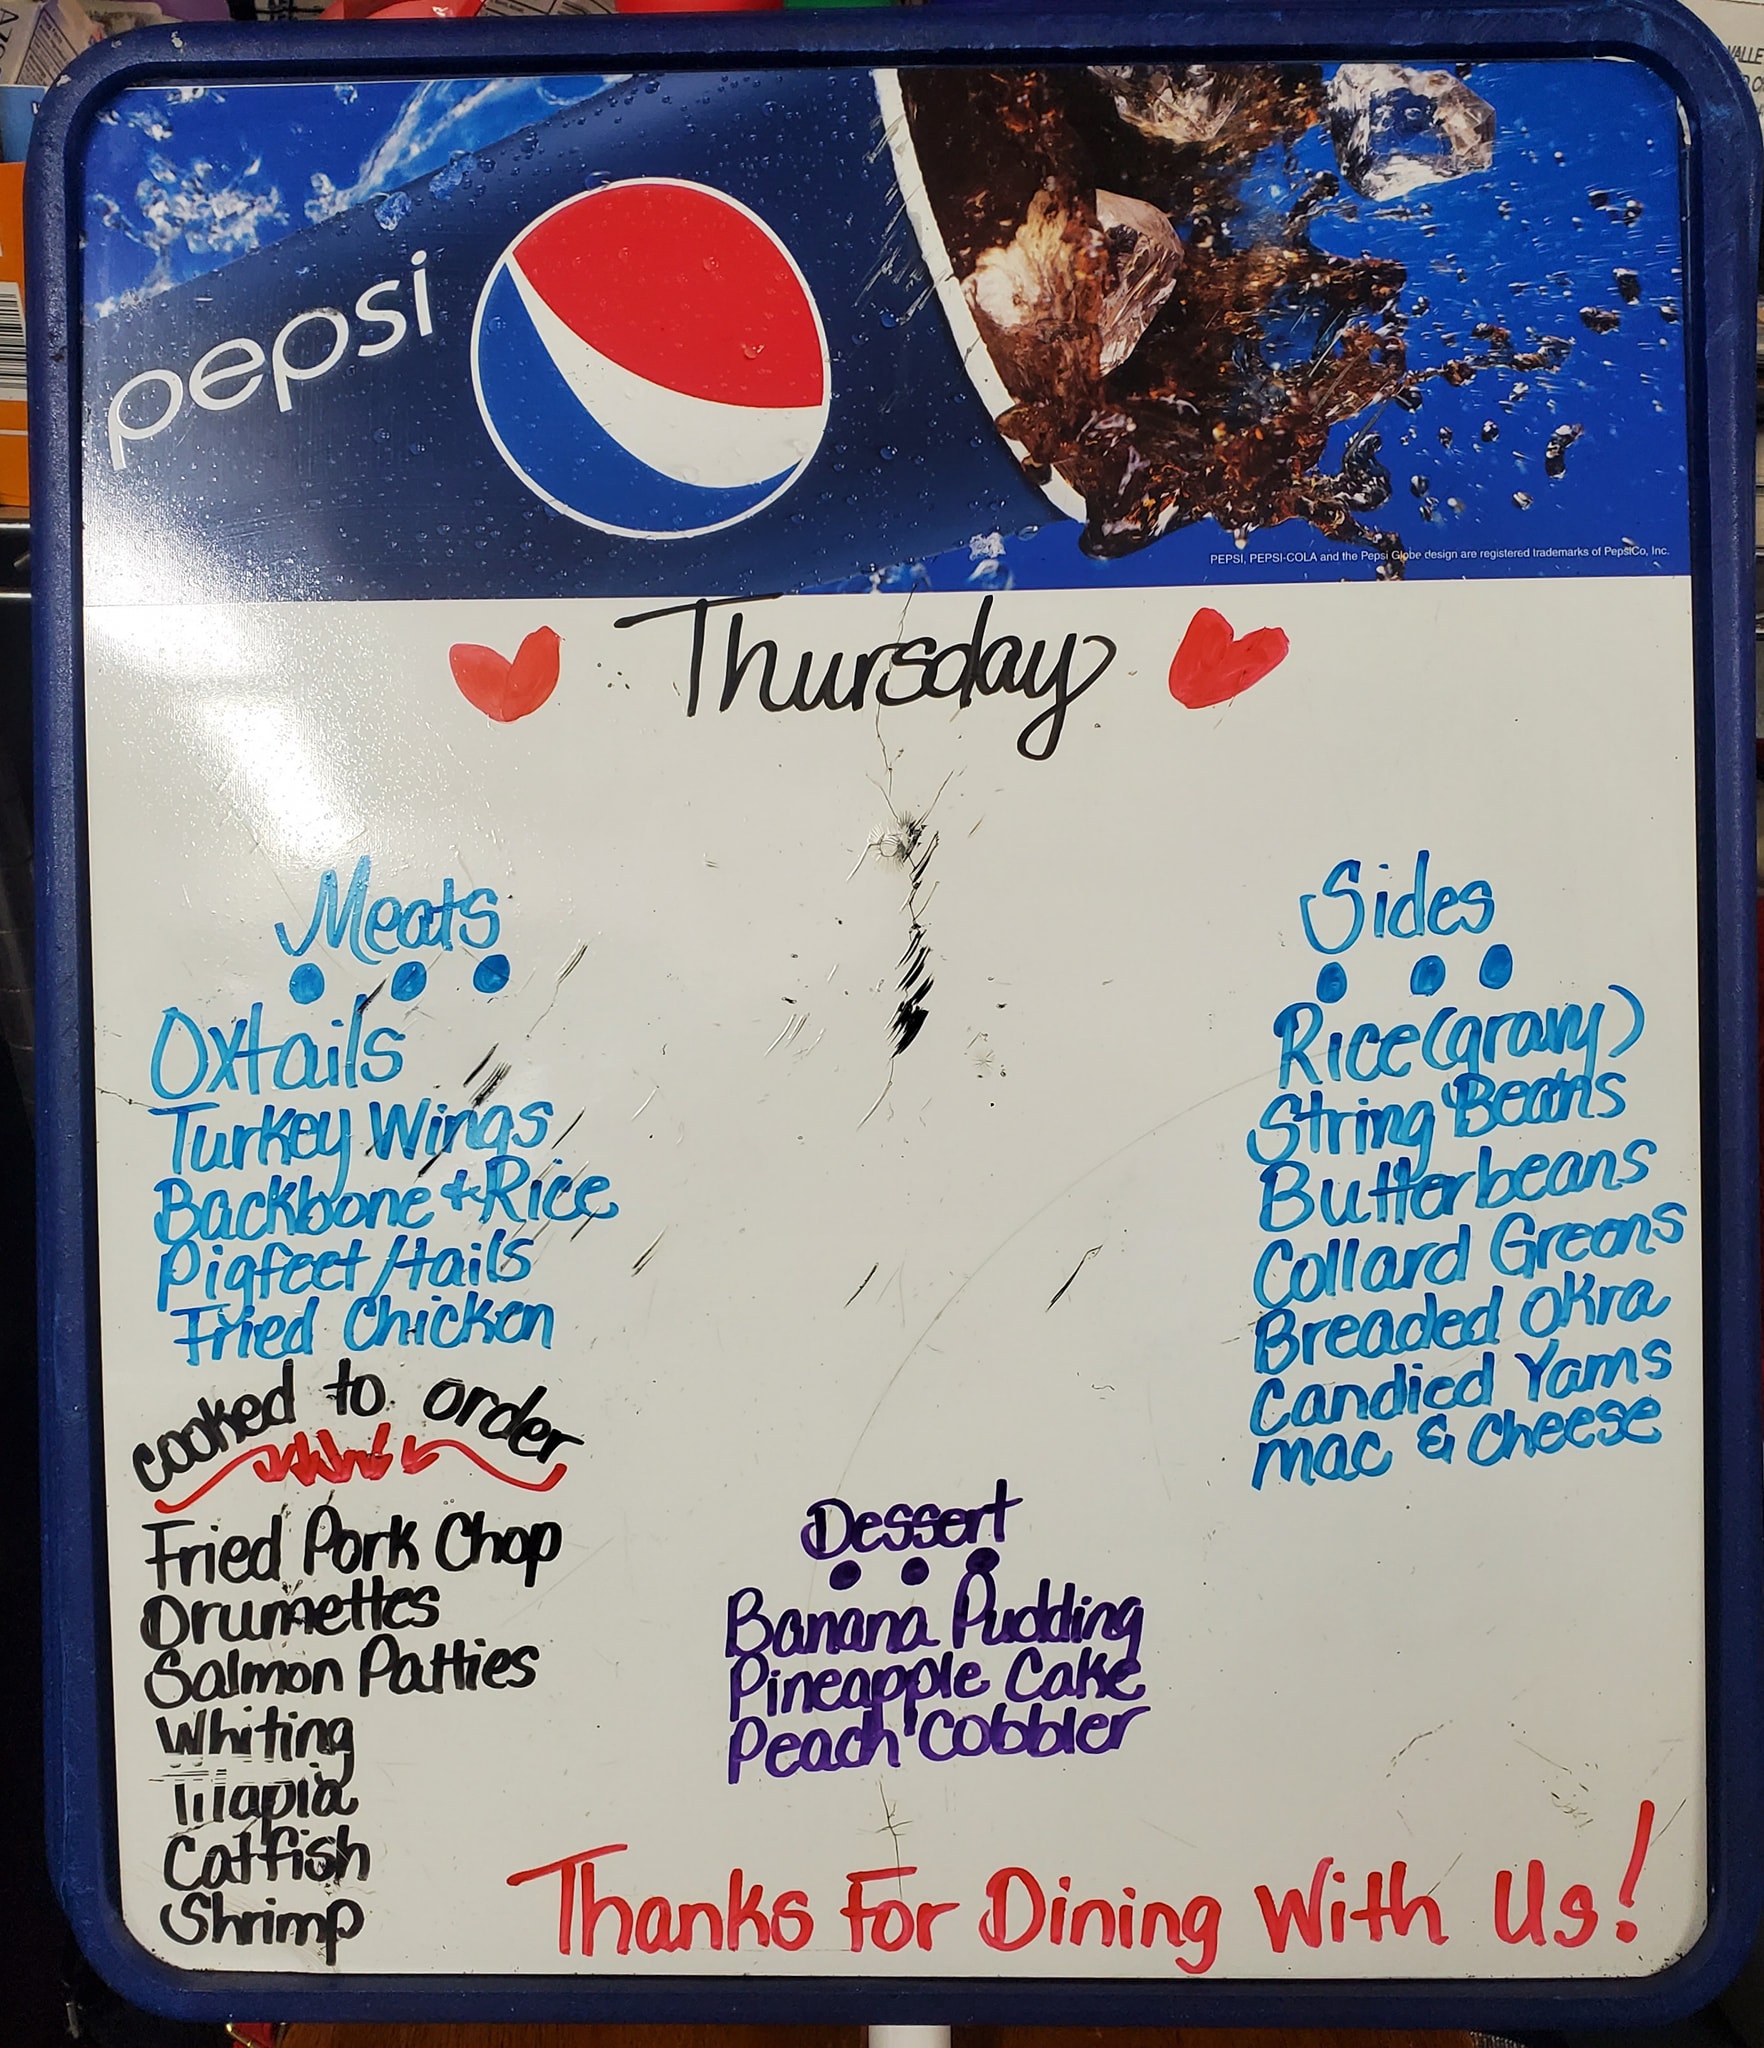 pepsi
PEPSI, PEPSI-COLA and the Pepsi Globe design are registered trademarks of PepsiCo, Inc.
Thursday
Meats
Oxtails
Turkey Wings
Backbone + Rice
Pigfeet/tails
Fried Chicken
cooked to order
Fried Pork Chop
Drumettes
Salmon Patties
Whiting
Tilapia
Catfish
Shrimp
Sides
Rice (gravy)
String Beans
Butterbeans
Collard Greens
Breaded Okra
Candied Yams
mac & cheese
Dessert
Banana Pudding
Pineapple Cake
Peach Cobbler
Thanks For Dining With Us!